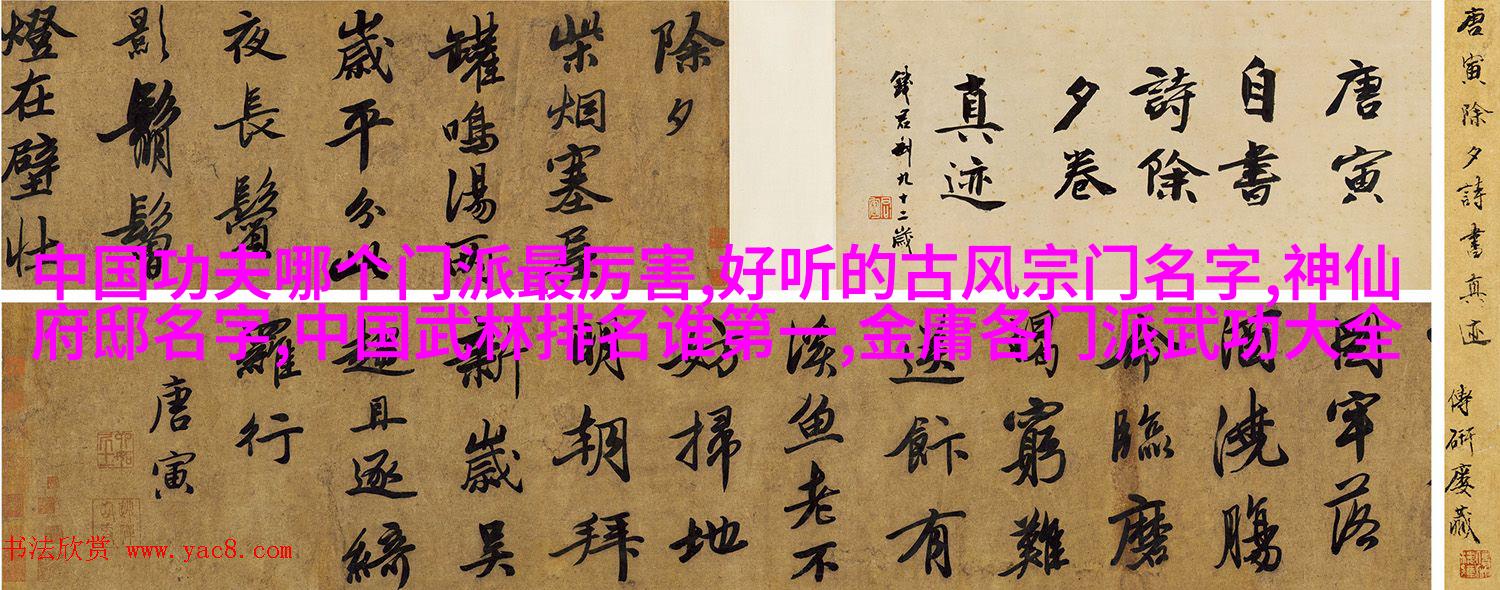 中国功夫哪个门派最厉害,好听的古风宗门名字,神仙
府邸名字,中国武林排名谁第一,金庸各门派武功大全
唐寅除夕詩書真迹 傅硯廎藏
唐寅
自書
詩除
夕卷
真迹
錢君匋九十二歲
除夕
柴烟塞屋
罐鳴湯兩
歲平分此
夜長鬢
影鬅鬙
燈在壁壯
圖牢落
酒澆腸
命臨磨
蝎窮難
送飰有
溪魚老不
妨掃地
明朝拜
新歲吳
趨且逐綺
羅行
唐寅
书法欣赏 www.yac8.com